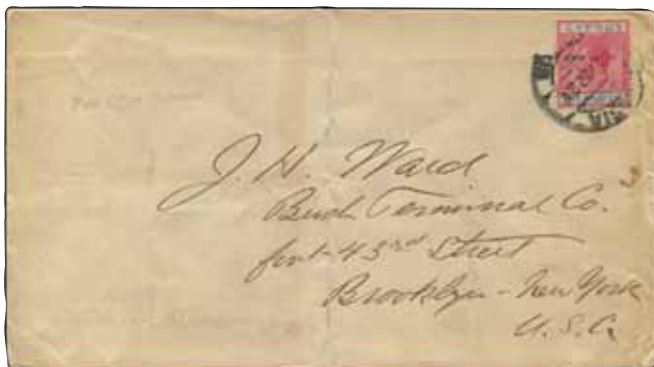 CYPRUS
J. H. Ward
Bush Terminal Co.
foot-43rd Street
Brooklyn - New York
U.S.A